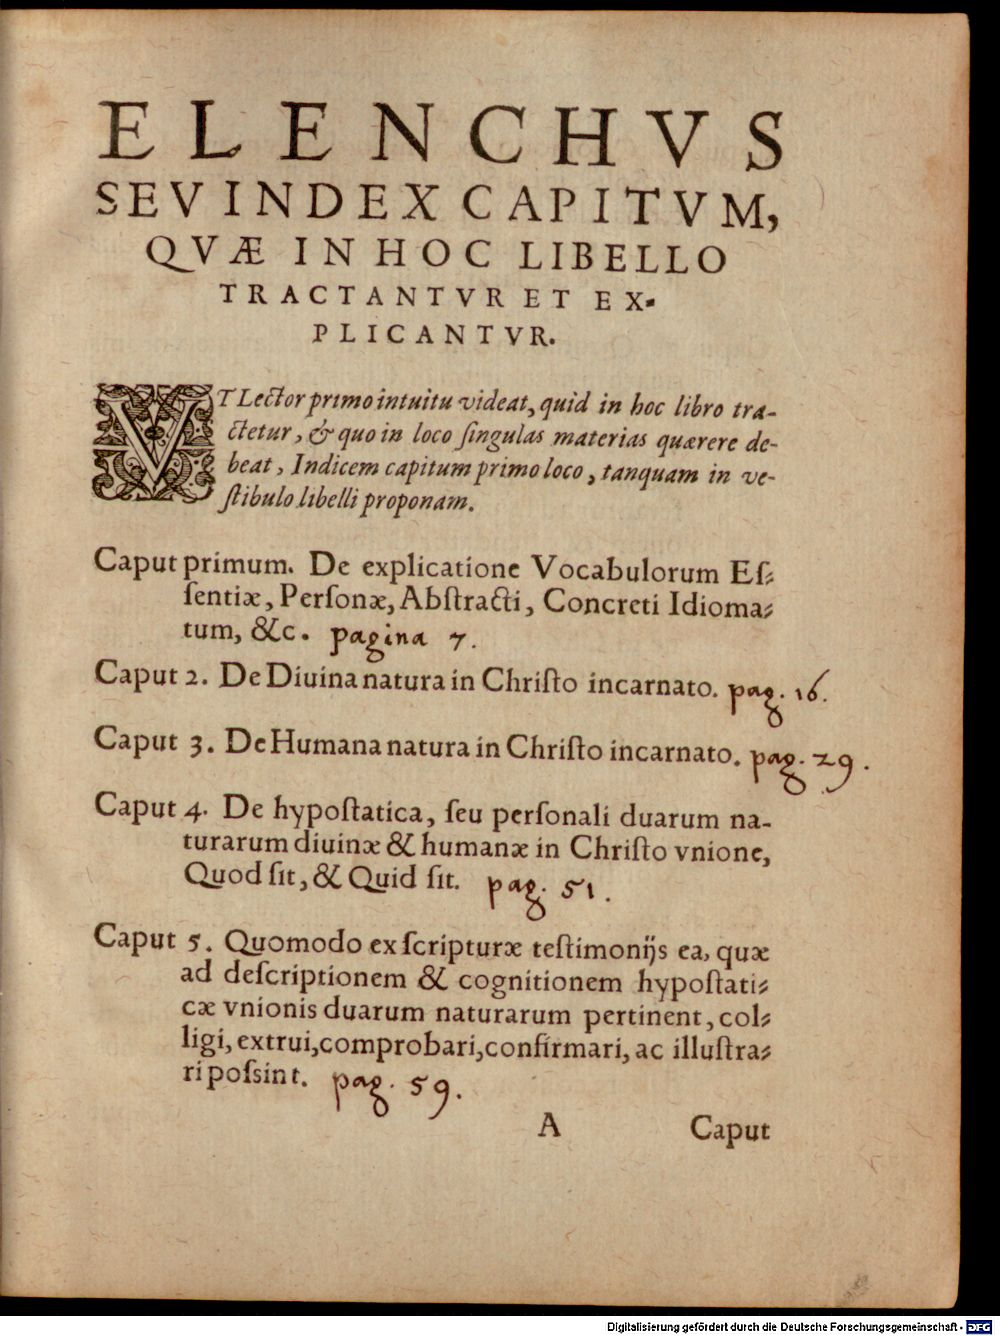 ELENCHVS
SEV INDEX CAPITVM,
QVÆ IN HOC LIBELLO
TRACTANTVR ET EX-
PLICANTVR.
VT Lector primo intuitu videat, quid in hoc libro tra-
ctetur, & quo in loco ſingulas materias quærere de-
beat, Indicem capitum primo loco, tanquam in ve-
ſtibulo libelli proponam.
Caput primum. De explicatione Vocabulorum Eſ-
ſentiæ, Perſonæ, Abſtracti, Concreti Idioma-
tum, &c. pagina 7.
Caput 2. De Diuina natura in Chriſto incarnato. pag. 16.
Caput 3. De Humana natura in Chriſto incarnato. pag. 29.
Caput 4. De hypoſtatica, ſeu perſonali duarum na-
turarum diuinæ & humanæ in Chriſto vnione,
Quod ſit, & Quid ſit. pag. 51.
Caput 5. Quomodo ex ſcripturæ teſtimonijs ea, quæ
ad deſcriptionem & cognitionem hypoſtati-
cæ vnionis duarum naturarum pertinent, col-
ligi, extrui, comprobari, confirmari, ac illuſtra-
ri poſsint. pag. 59.
A Caput
Digitalisierung gefördert durch die Deutsche Forschungsgemeinschaft - DFG